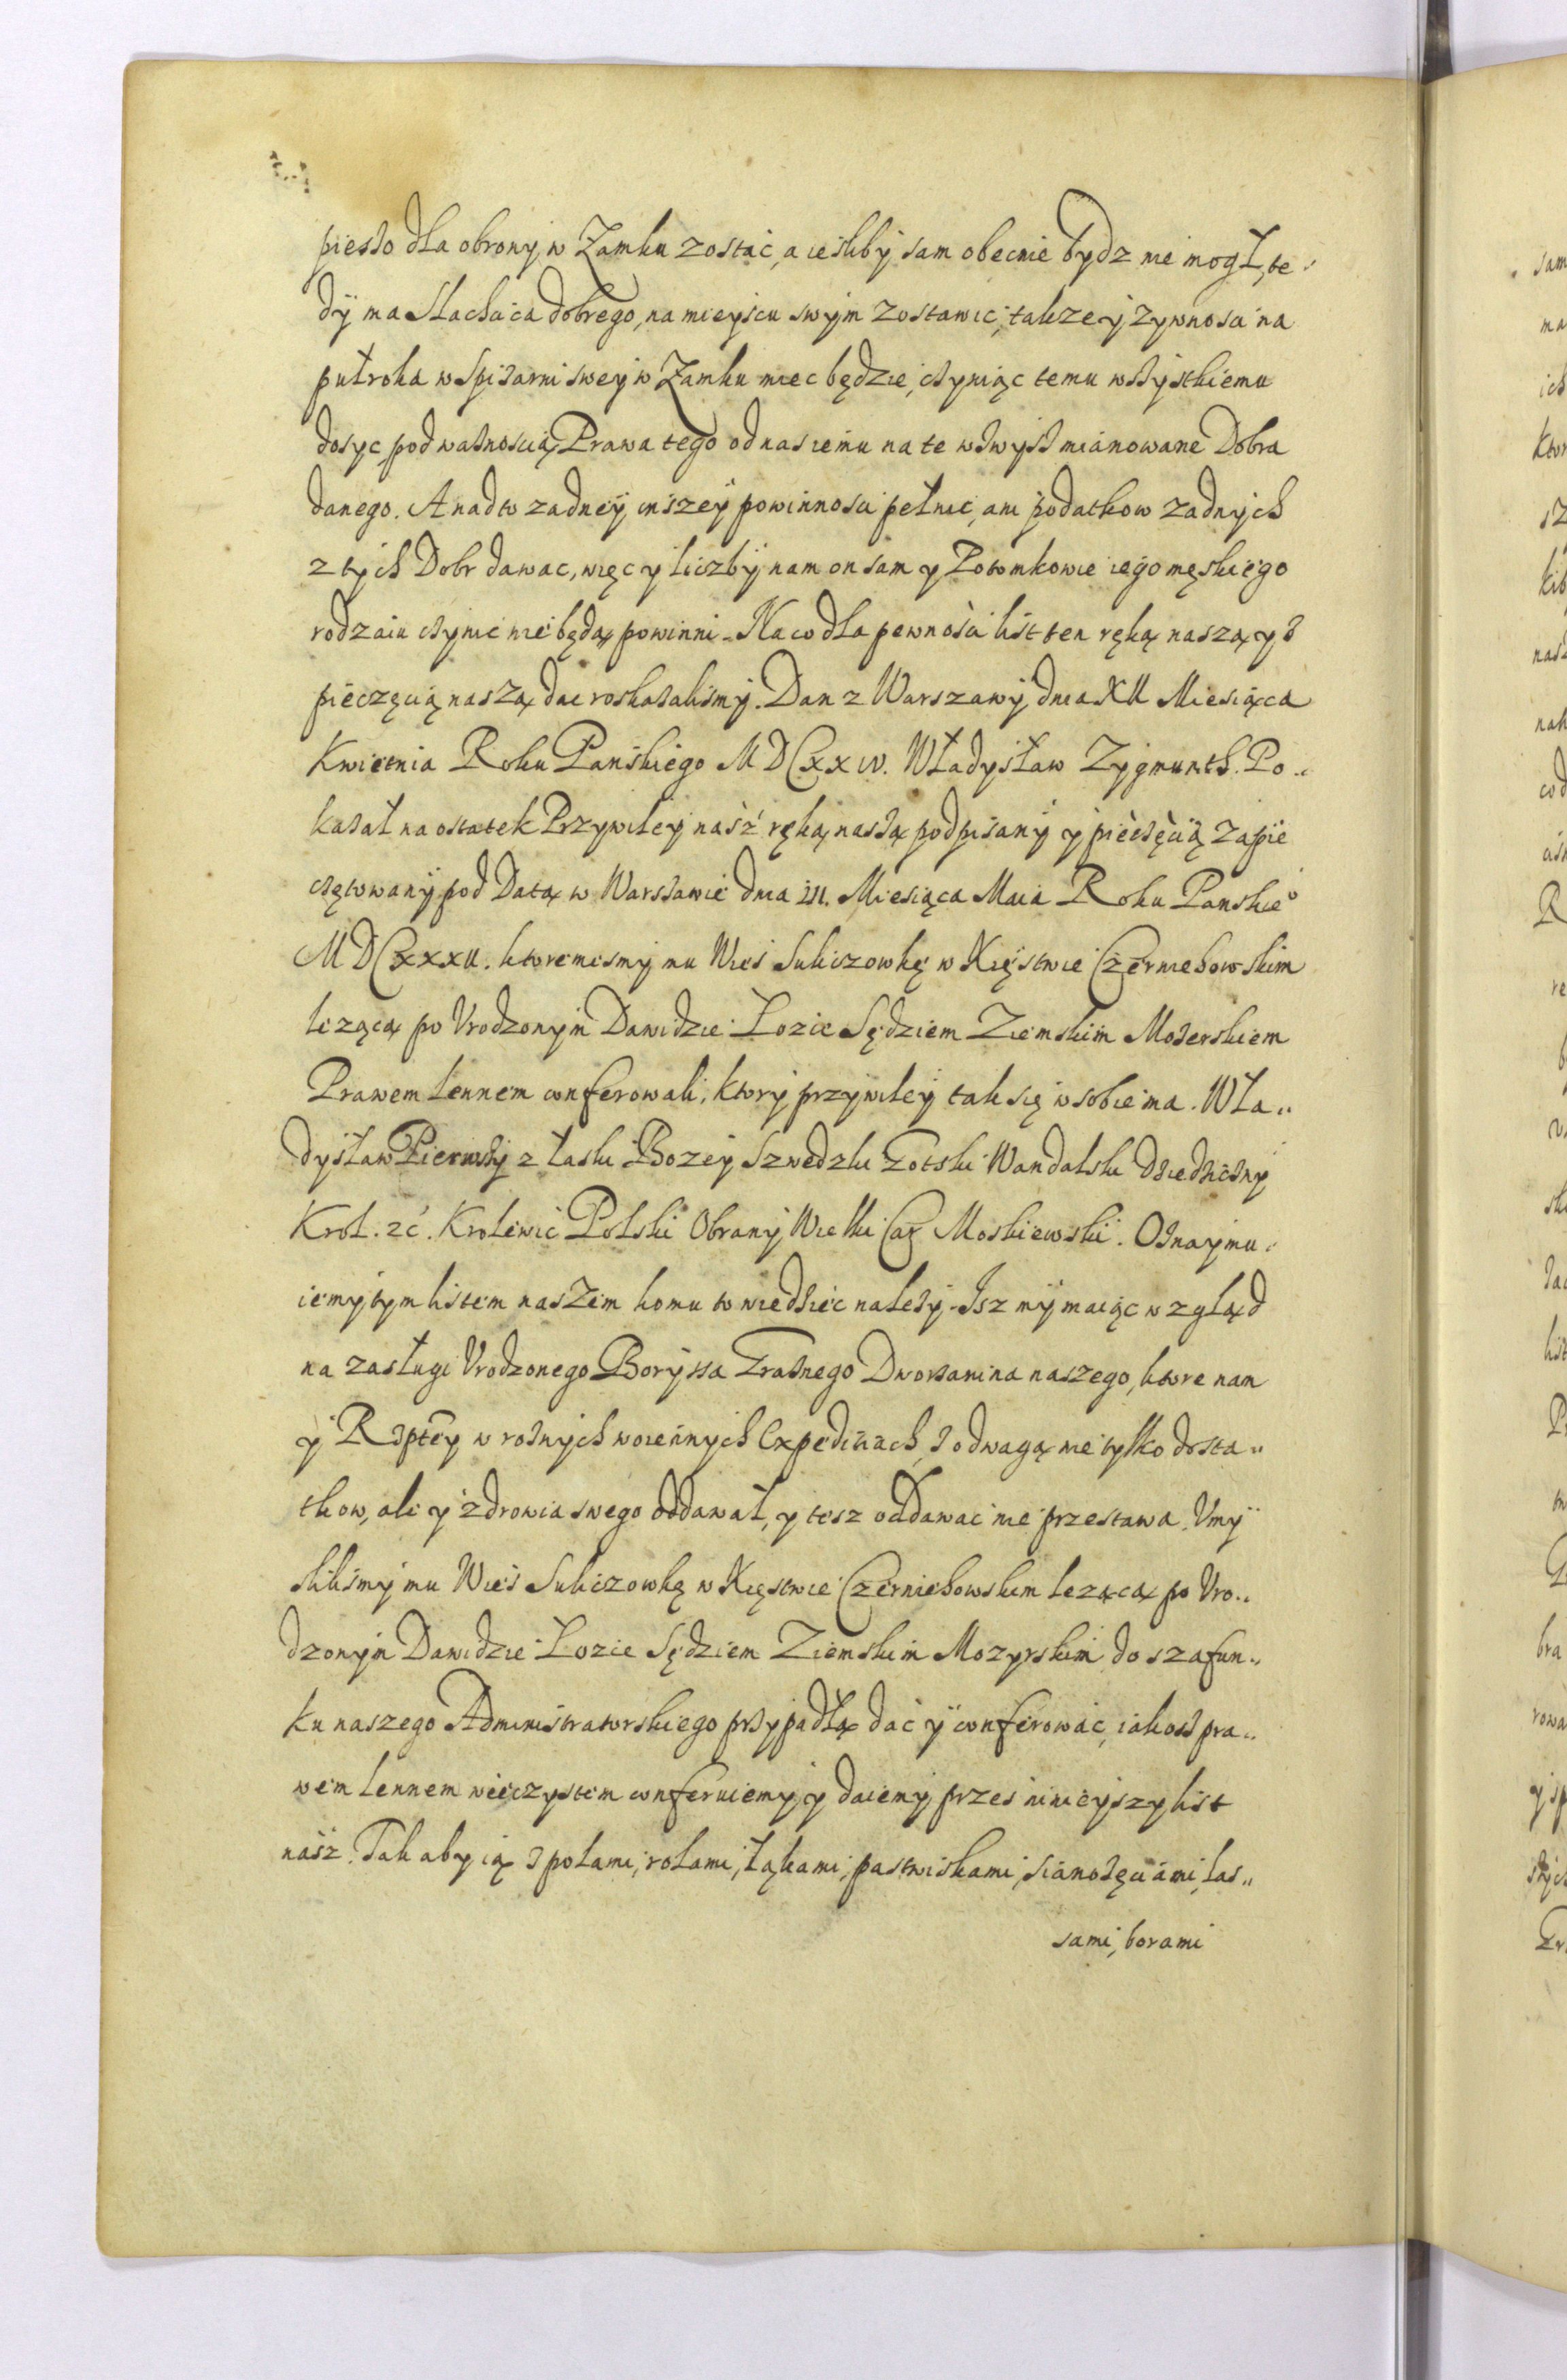 pieszo dla obrony w Zamku zostać, a iesliby sam obecnie bydz nie mogł, te-
dy ma Slachcica dobrego, na mieyscu swym zostawic, takze y zywnosci na
pułroka w Spizarni swey w Zamku miec będzie, czyniąc temu wszystkiemu
dosyc pod waznoscią Prawa tego od nas iemu na te wzwysz mianowane Dobra
danego. A nad to zadney inszey powinnosci pełnic, ani podatkow zadnych
z tych Dobr dawac, więc y liczby nam on sam y Potomkowie iego męskiego
rodzaiu czynic nie będą powinni. Na co dla pewnosci list ten ręką naszą y z
pieczęcią naszą dac roskazalismy. Dan z Warszawy dnia XII Miesiąca
Kwietnia Roku Panskiego MDCXXIV. Władysław Zygmunth. Po-
kazał na ostatek Przywiley nasz ręką naszą podpisany y pieczęcią zapie
czętowany pod Datą w Warszawie dnia III. Miesiąca Maia Roku Panskieo
MDCXXXII. ktoremesmy mu Wies Suliczowkę w Xięstwie Czerniehowskim
lezącą po Vrodzonym Dawidzie Lozie Sędziem Ziemskim Mozerskiem
Prawem lennem conferowali, ktory przywiley tak się w sobie ma. Wła-
dysław Pierwszy z łaski Bozey Szwedzki Gotski Wandalski dziedziczny
Krol. zć. Krolewic Polski Obrany Wielki Car Moskiewski. Oznaymu-
iemy tym listem naszem komu to wiedziec nalezy. Isz my maiąc wzgląd
na zasługi Vrodzonego Boryssa Graznego Dworzanina naszego, ktore nam
y Rzptey w roznych woiennych Expeditiach, z odwagą nie tylko dosta-
tkow, ale y zdrowia swego oddawał, y tesz oddawac nie przestawa. Vmy
slilismy mu Wies Suliczowkę w Xięstwie Czerniehowskim lezącą po Vro-
dzonym Dawidzie Lozie Sędziem Ziemskim Mozyrskim do szafun-
ku naszego Administratorskiego przypadłą dać y conferować, iakosz pra-
wem lennem wieczystem conferuiemy y daiemy przes ninieyszy list
nasz. Tak aby ią z polami, rolami, łąkami, pastwiskami, sianozęciami, las-
sami, borami